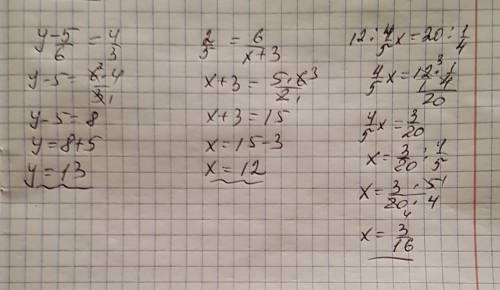 y-5/6 = 4/3
y-5 = 6²·4/3₁
y-5=8
y=8+5
y=13
2/5 = 6/x+3
x+3 = 5·6³/2₁
x+3=15
x=15-3
x=12
12:4/5x=20:1/4
4/5x=12³·1/4₁/20
4/5x=3/20
x=3/20:4/5
x=3·5¹/20₄·4
x=3/16